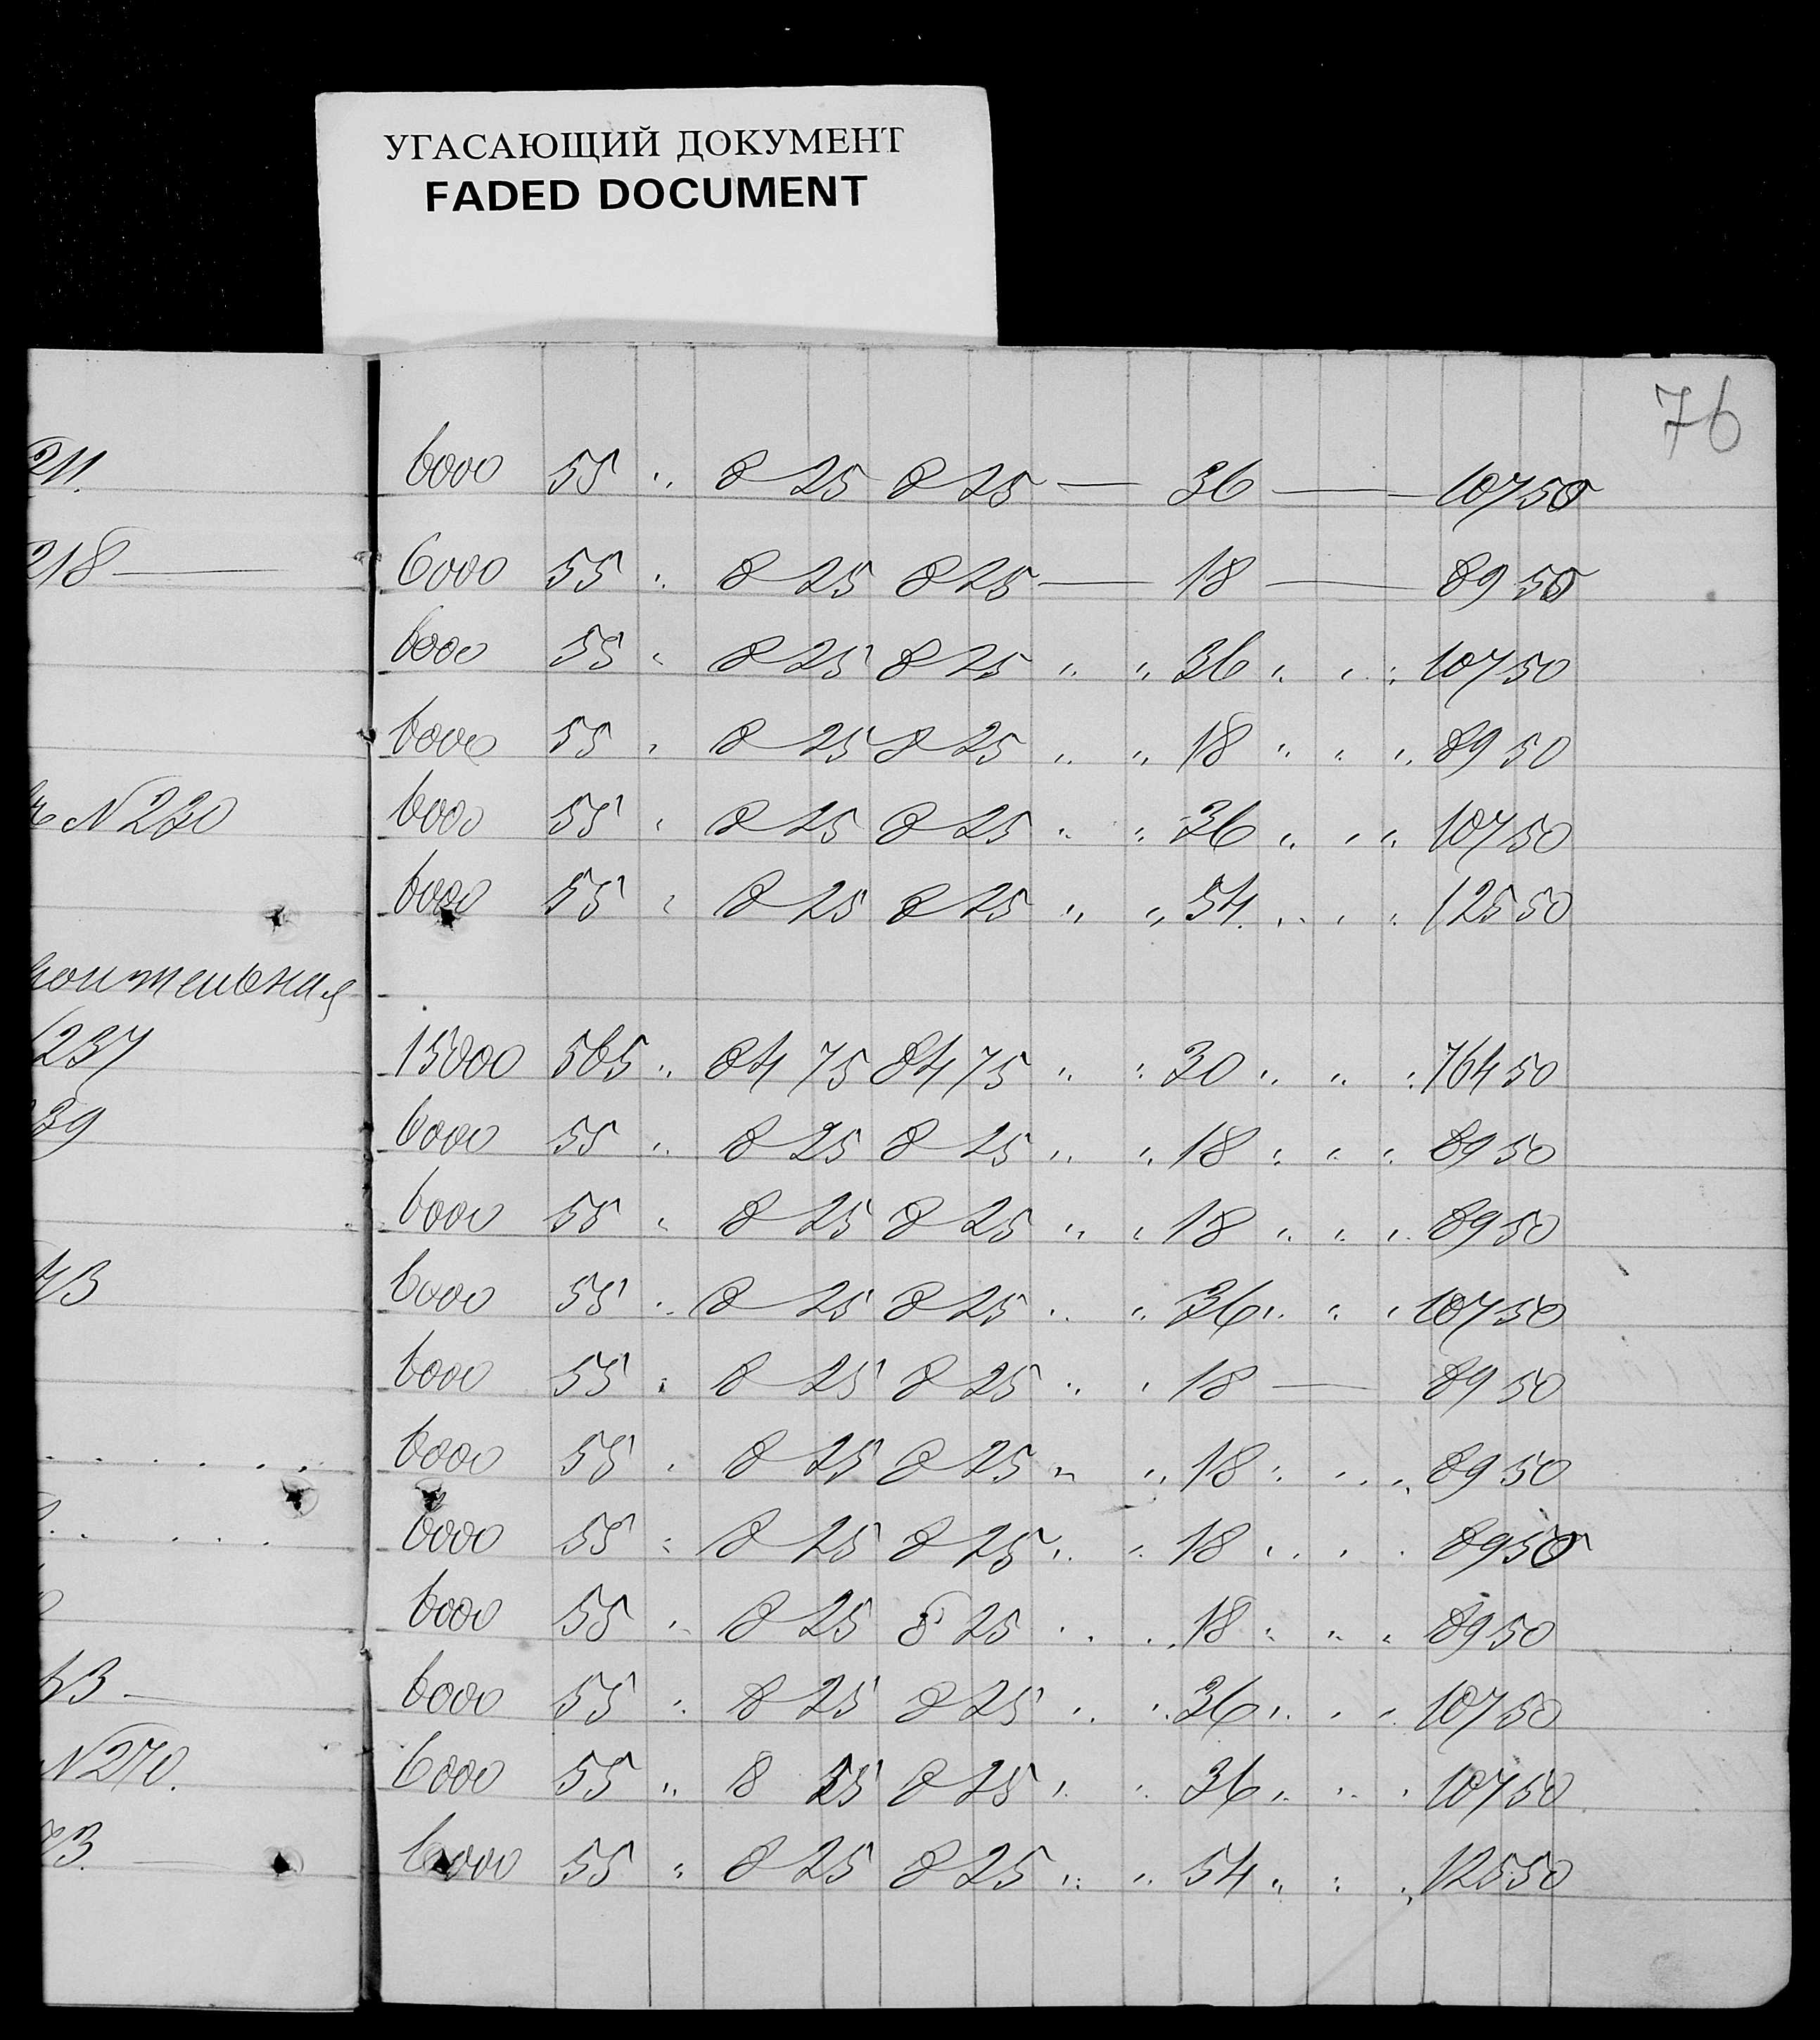 УГАСАЮЩИЙ ДОКУМЕНТ
FADED DOCUMENT
76
211. 6000 55 " 8 25 8 25 — 36 — 107 50
218 — 6000 55 " 8 25 8 25 — 18 — 89 50
6000 55 " 8 25 8 25 " " 36 " " " 107 50
6000 55 " 8 25 8 25 " " 18 " " " 89 50
N 230 6000 55 " 8 25 8 25 " " 36 " " " 107 50
6000 55 " 8 25 8 25 " " 54 " " " 125 50
оительная
237 15000 565 " 84 75 84 75 " " 30 " " " 764 50
39 6000 55 " 8 25 8 25 " " 18 " " " 89 50
6000 55 " 8 25 8 25 " " 18 " " " 89 50
43 6000 55 " 8 25 8 25 " " 36 " " " 107 50
6000 55 " 8 25 8 25 " " 18 — 89 50
. . . . . . 6000 55 " 8 25 8 25 " " 18 " " " 89 50
. . . . . 6000 55 " 8 25 8 25 " " 18 " " " 89 50
6000 55 " 8 25 8 25 " " 18 " " " 89 50
63 — 6000 55 " 8 25 8 25 " " 36 " " " 107 50
N 270. 6000 55 " 8 25 8 25 " " 36 " " " 107 50
73. — 6000 55 " 8 25 8 25 " " 54 " " " 125 50